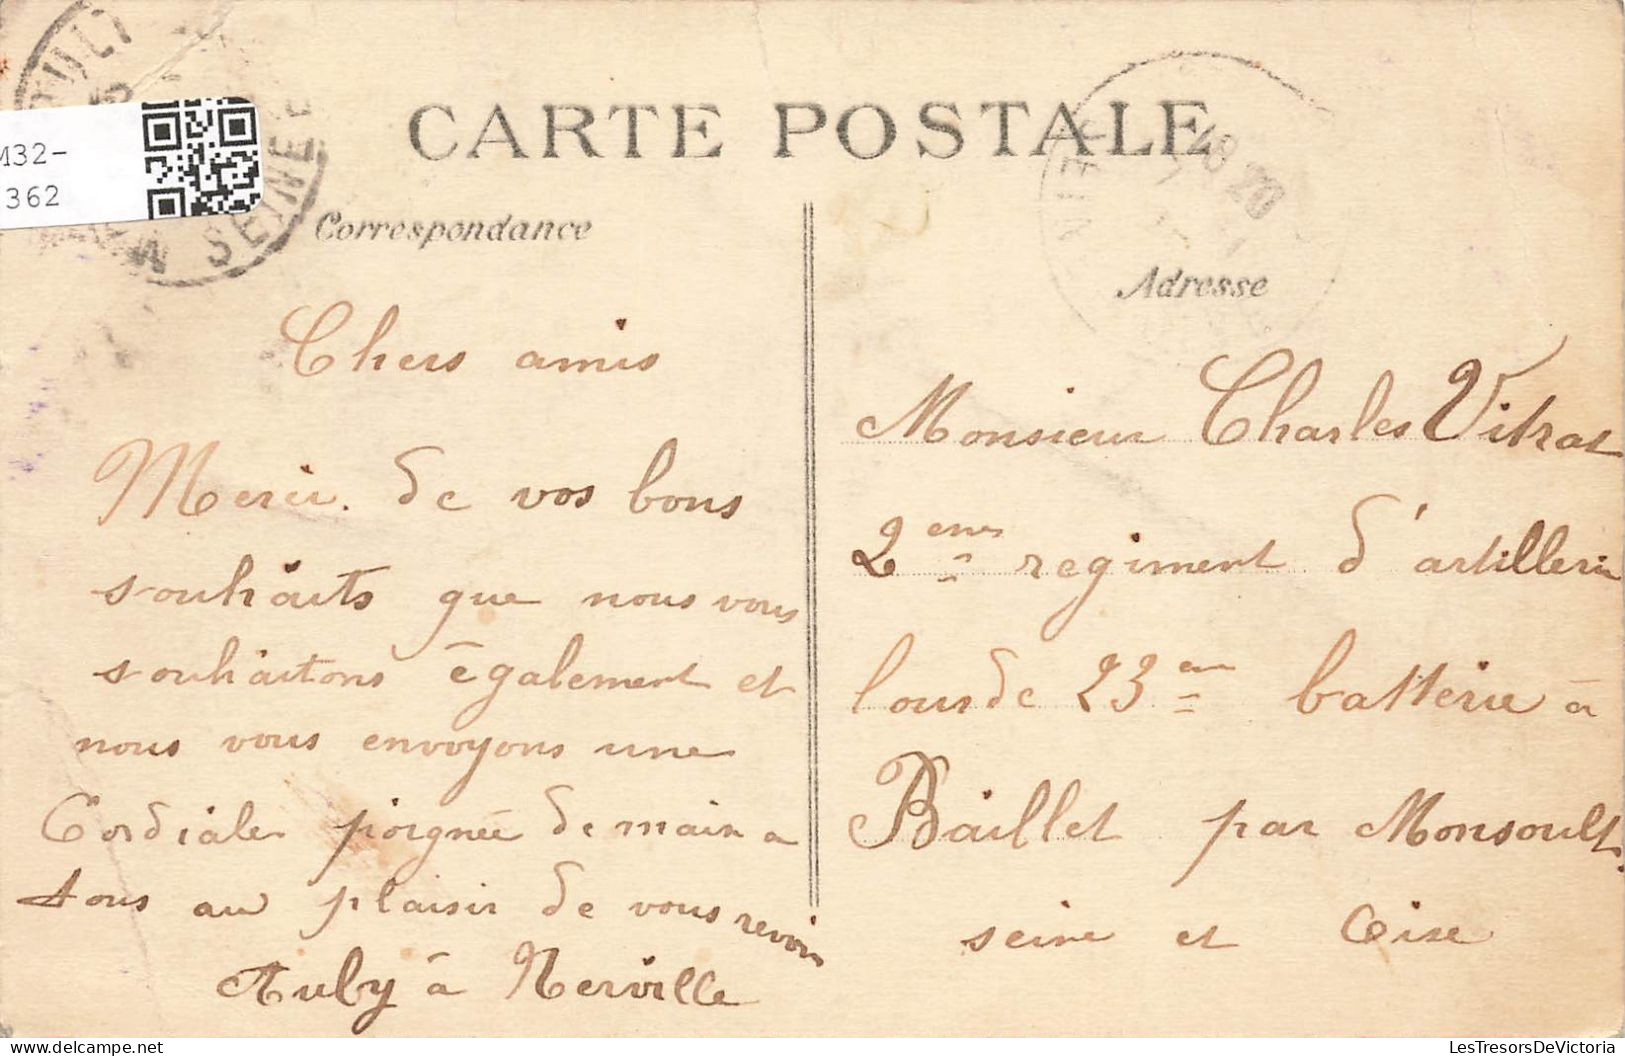 M32-
362
CARTE POSTALE
Correspondance
Adresse
SEINE
18 20
Chers amis
Merci. de vos bons
souhaits que nous vous
souhaitons également et
nous vous envoyons une
Cordiale poignée de main a
tous au plaisir de vous revoir
Auby à Nerville
Monsieur Charles Vitrat
2eme regiment d'artillerie
lourde 23em batterie à
Baillet par Monsoult
seine et Oise
LesTresorsDeVictoria